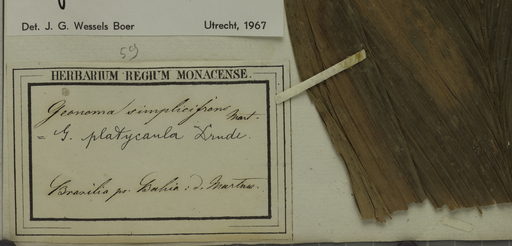 Det. J. G. Wessels Boer Utrecht, 1967
59
HERBARIUM REGIUM MONACENSE.
Geonoma simplicifrons Mart.
= G. platycaula Drude.
Brasilia pr. Bahia: d. Martius.